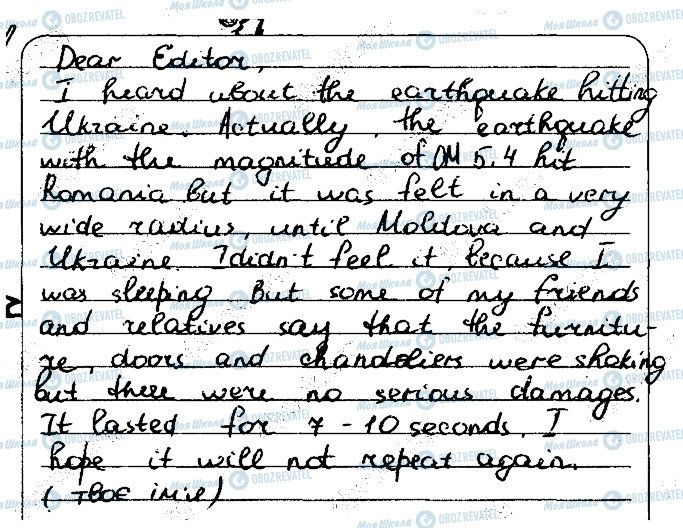 Dear Editor,
I heard about the earthquake hitting
Ukraine. Actually, the earthquake
with the magnitude of ML 5.4 hit
Romania but it was felt in a very
wide radius, until Moldova and
Ukraine. I didn't feel it, because I
was sleeping. But some of my friends
and relatives say that the furnitu-
re, doors and chandeliers were shaking
but there were no serious damages.
It lasted for 7-10 seconds. I
hope it will not repeat again.
(твоє ім'я)